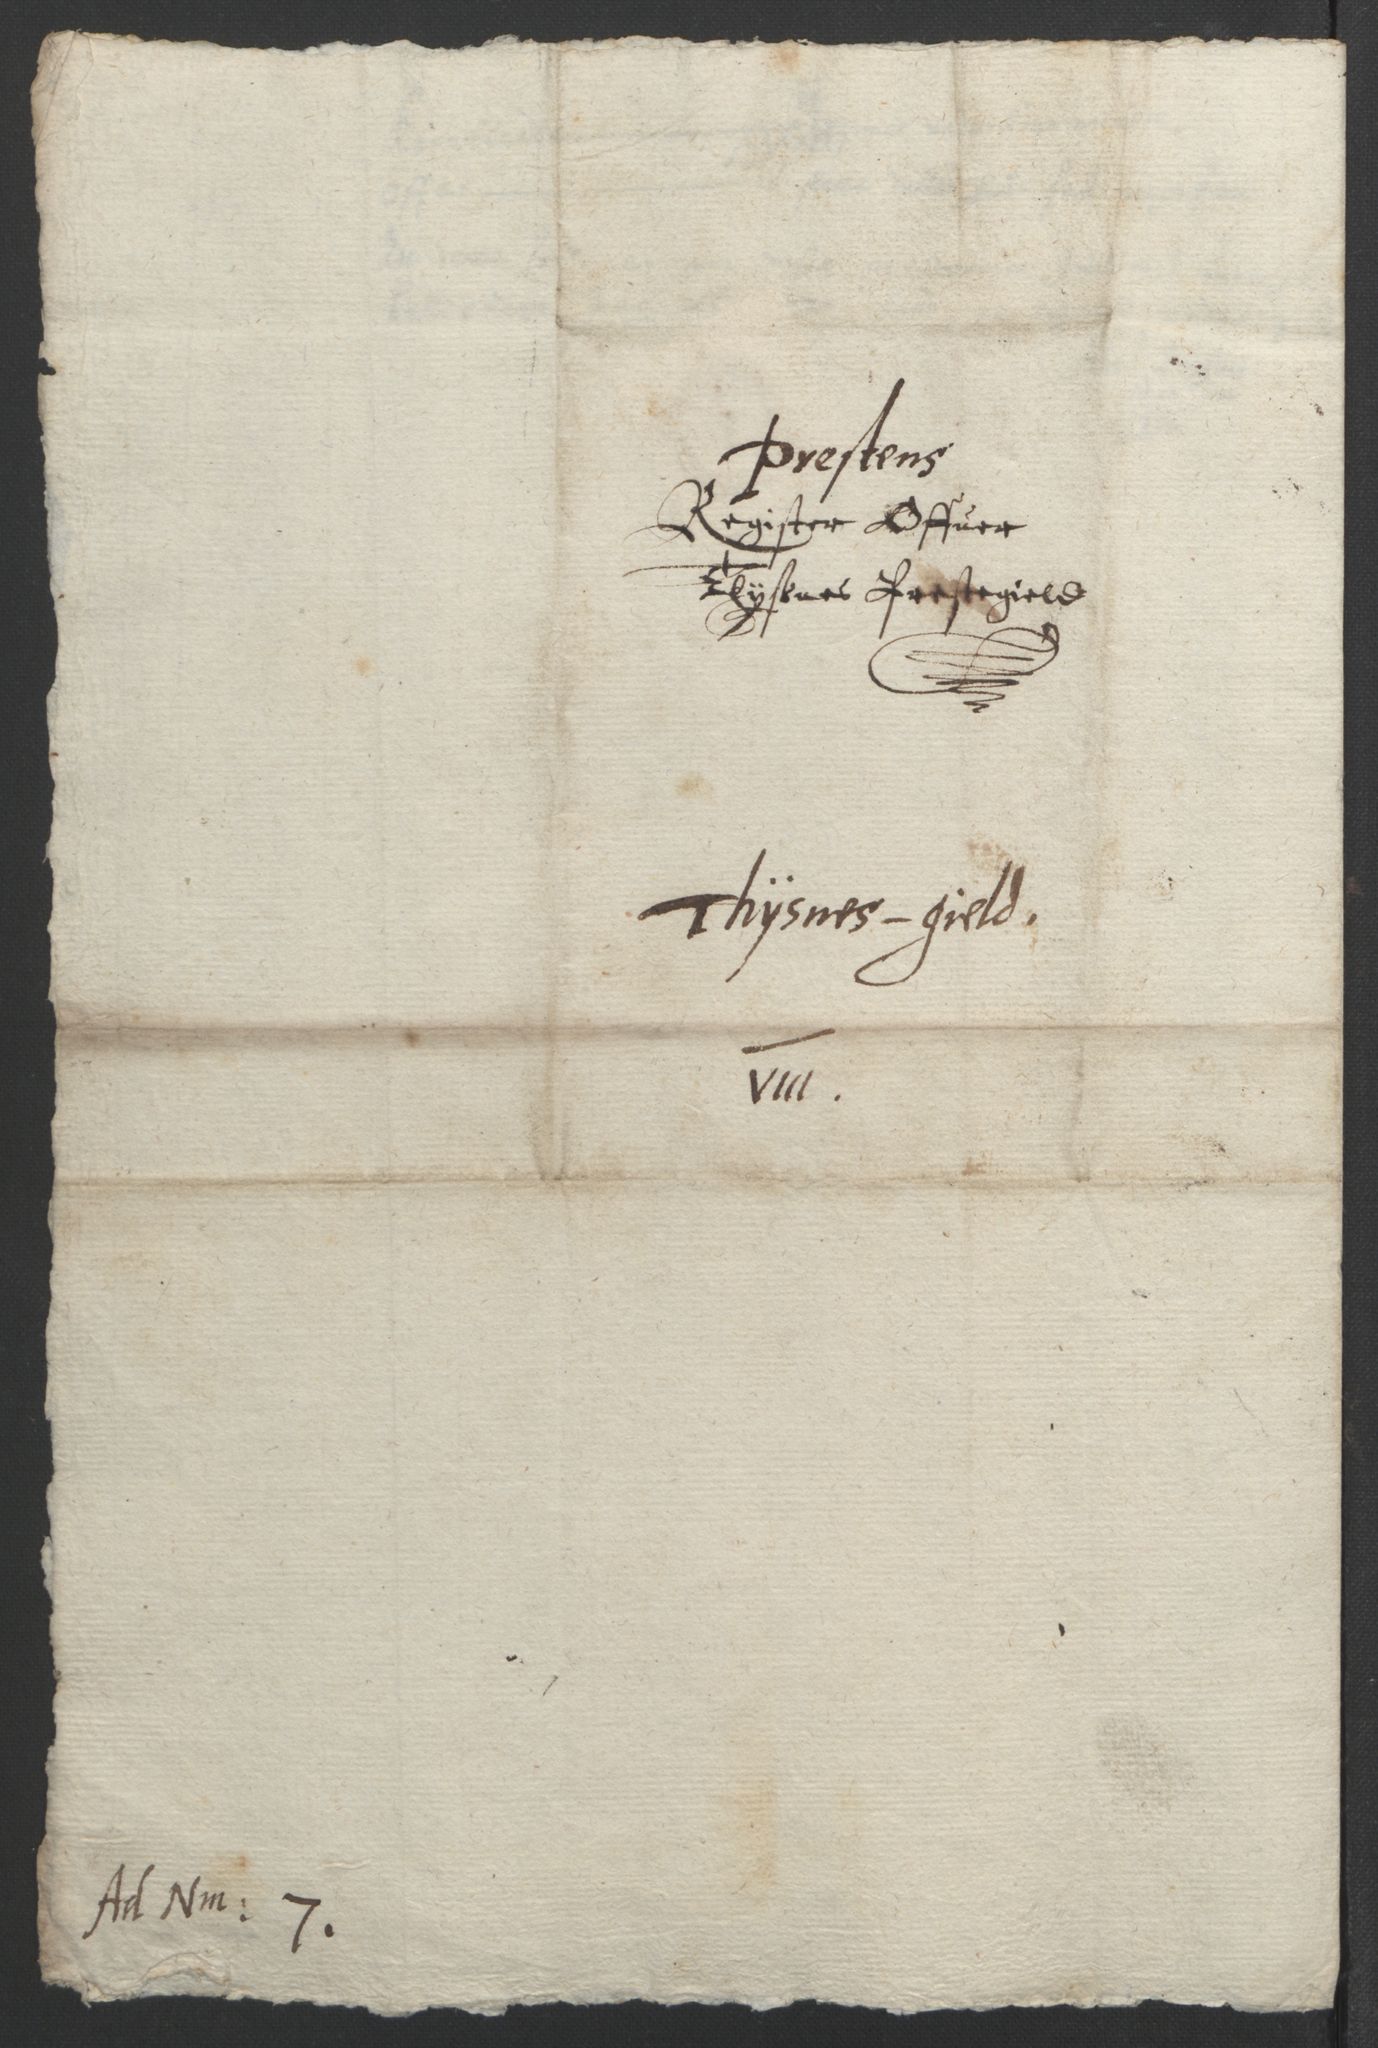 Prestens
Register Offuer
Thÿsnes Prestegield
Thÿsnes - gield.
VIII.
Ad Nm: 7.